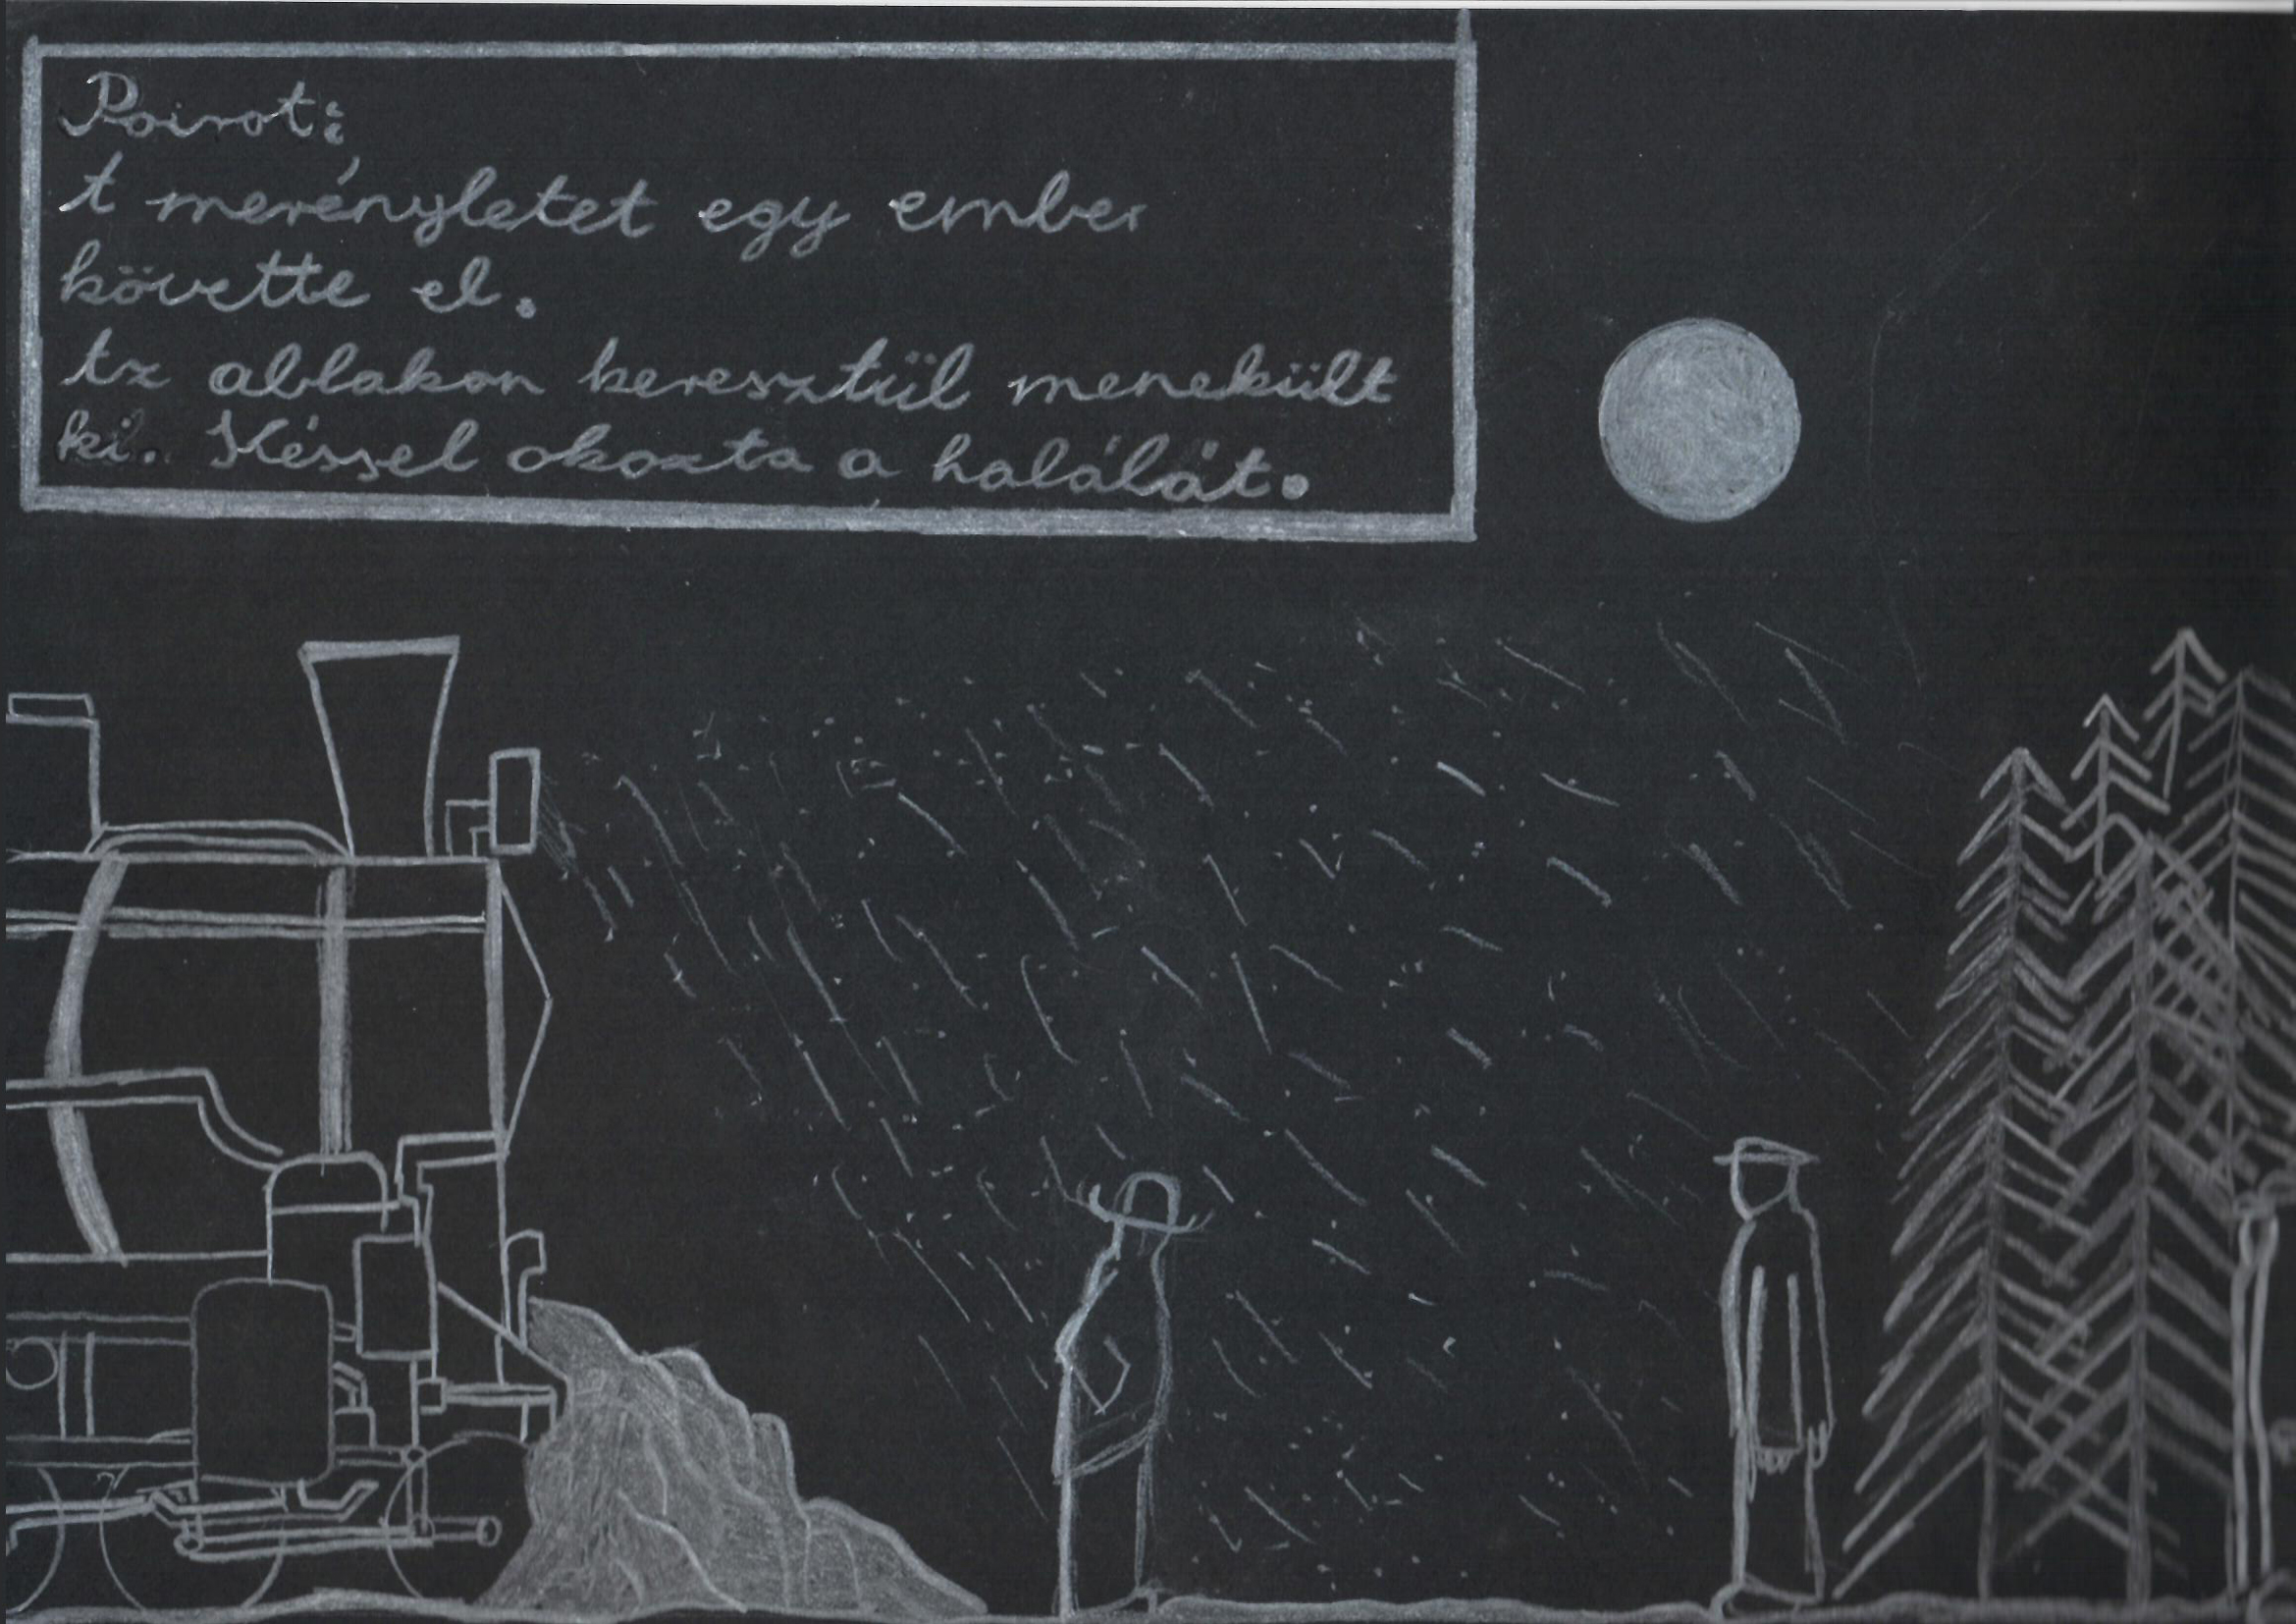 Poirot:
A merényletet egy ember
követte el.
Az ablakon keresztül menekült
ki. Késsel okozta a halálát.